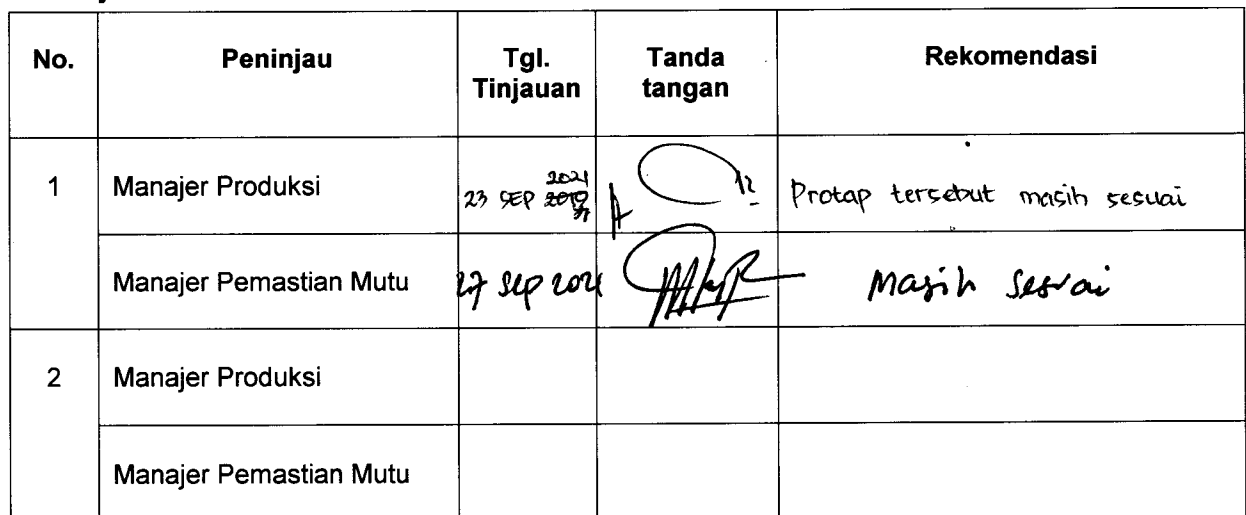 No. Peninjau Tgl. Tinjauan Tanda tangan Rekomendasi
1 Manajer Produksi 23 SEP 2021 2019 Protap tersebut masih sesuai
Manajer Pemastian Mutu 27 Sep 2021 Masih sesuai
2 Manajer Produksi
Manajer Pemastian Mutu